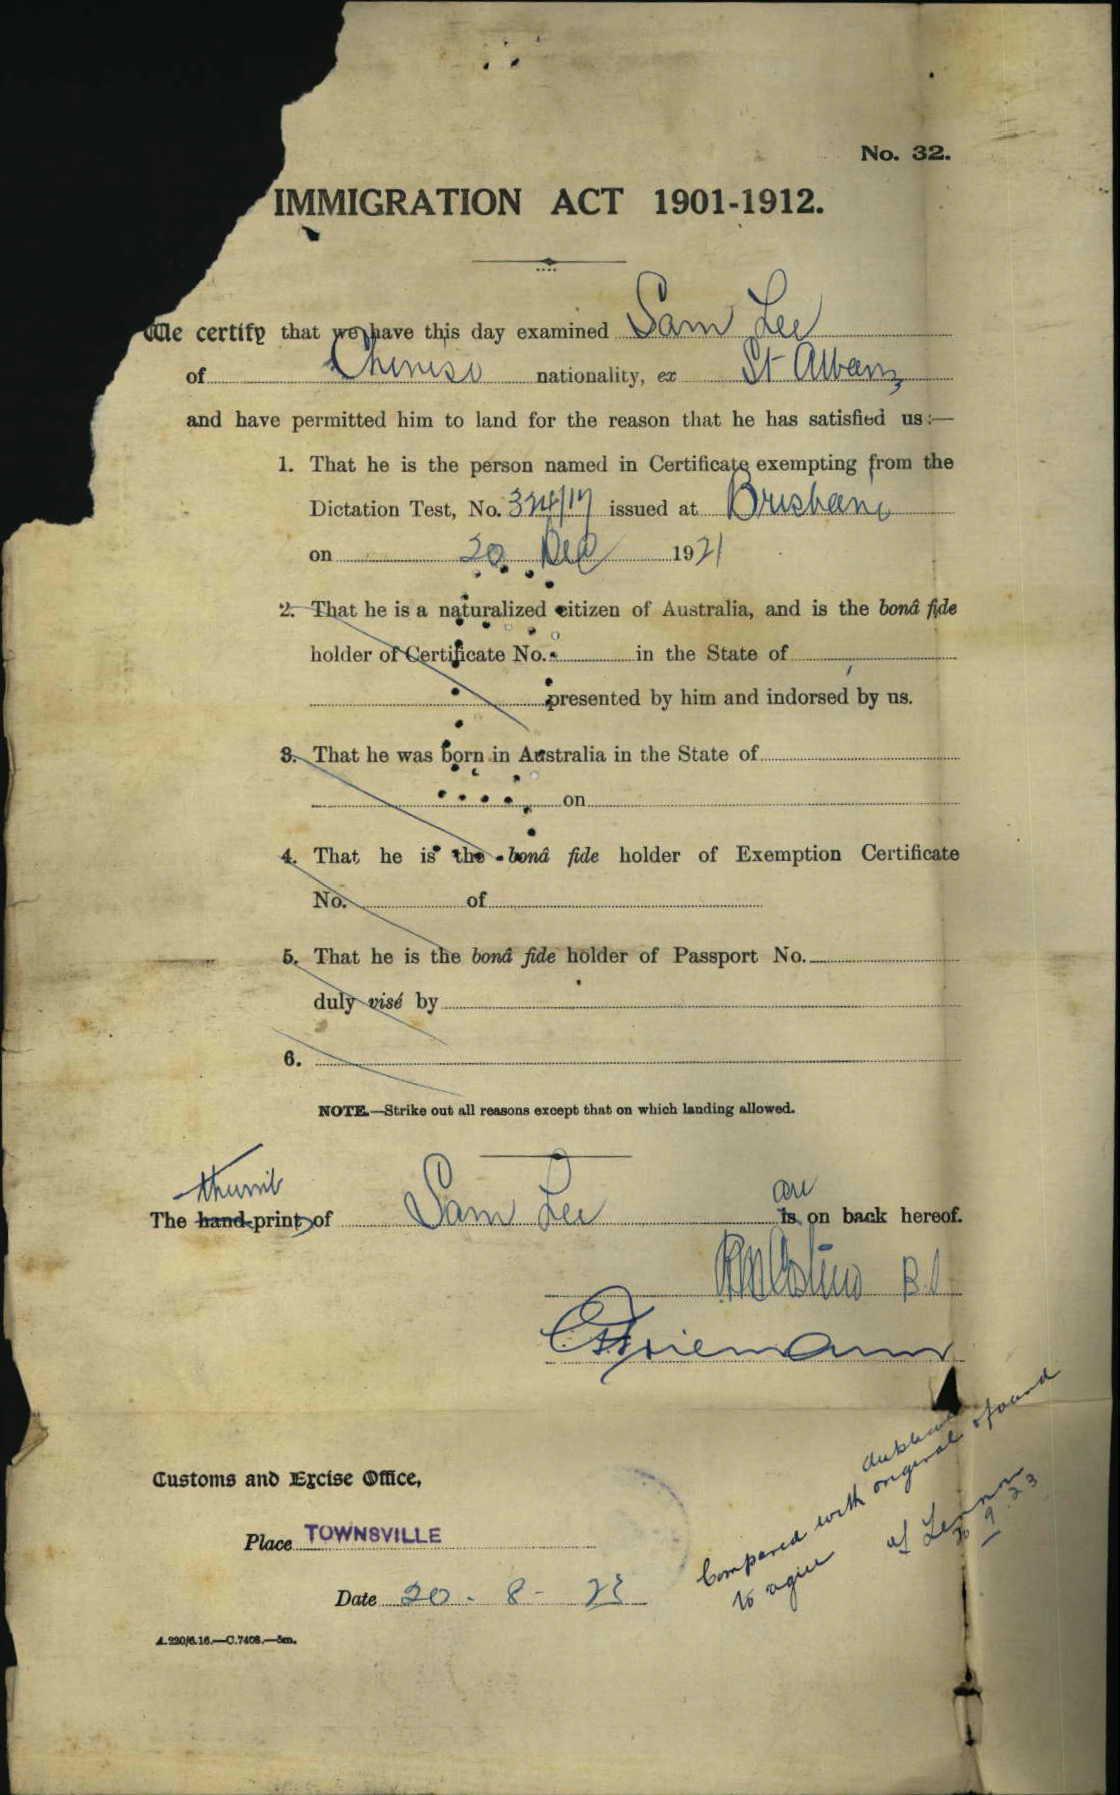 No. 32.
IMMIGRATION ACT 1901-1912.
We certify that we have this day examined Sam Lee
of Chinese nationality, ex St Albans
and have permitted him to land for the reason that he has satisfied us:—
1. That he is the person named in Certificate exempting from the
Dictation Test, No. 324/17 issued at Brisbane
on 20 Dec 1921
2. That he is a naturalized citizen of Australia, and is the bonâ fide
holder of Certificate No. in the State of
presented by him and indorsed by us.
3. That he was born in Australia in the State of
on
4. That he is the bonâ fide holder of Exemption Certificate
No. of
5. That he is the bonâ fide holder of Passport No.
duly visé by
6.
NOTE.—Strike out all reasons except that on which landing allowed.
thumb are
The hand-prints of Sam Lee is on back hereof.
Customs and Excise Office,
Place TOWNSVILLE
Date 20 - 8 - 23
A.220/6.16.—C.7408.—5m.
Compared with original & found
to agree
9.23